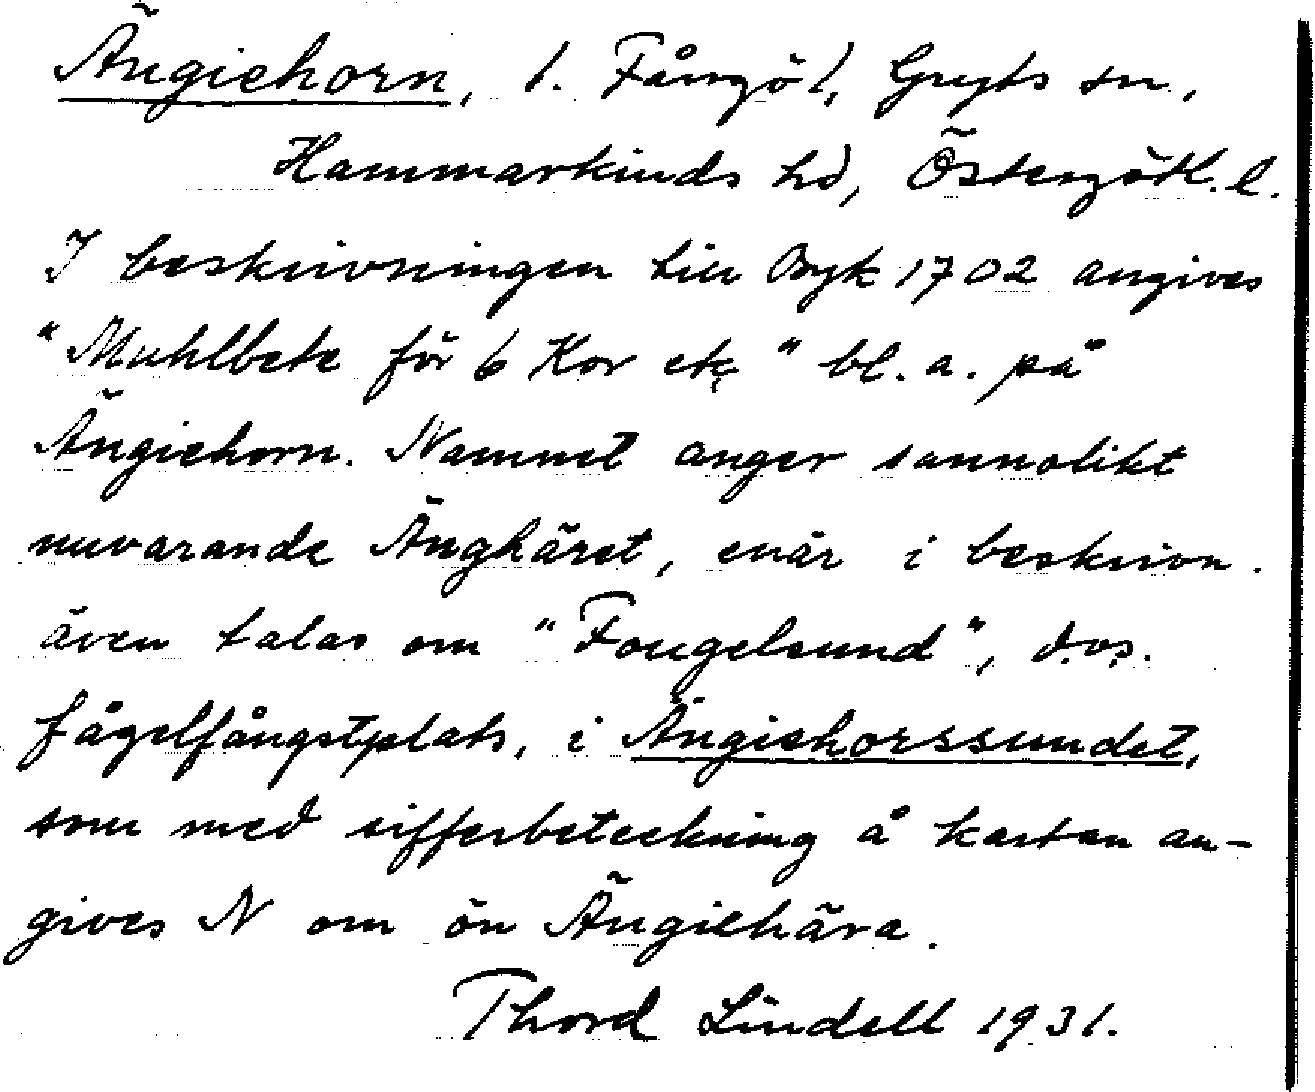 Ängiehorn, 1. Fångö 1, Gryts sn,
Hammarkinds hd, Östergötl. l.
I beskrivningen till Byk 1702 angives
"Muhlbete för 6 Kor etc" bl. a. på
Ängiehorn. Namnet anger sannolikt
nuvarande Änghäret, enär i beskrivn.
även talas om "Fougelsund", d.v.s.
fågelfångstplats, i Ängiehorssundet,
som med sifferbeteckning å kartan an-
gives N om ön Ängiehära.
Thord Lindell 1931.